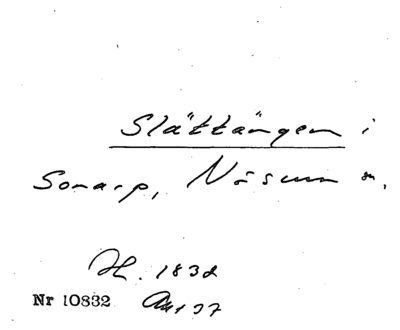 Slättängen i
Sonarp, Näsum sn.
H. 1832
Nr 10832